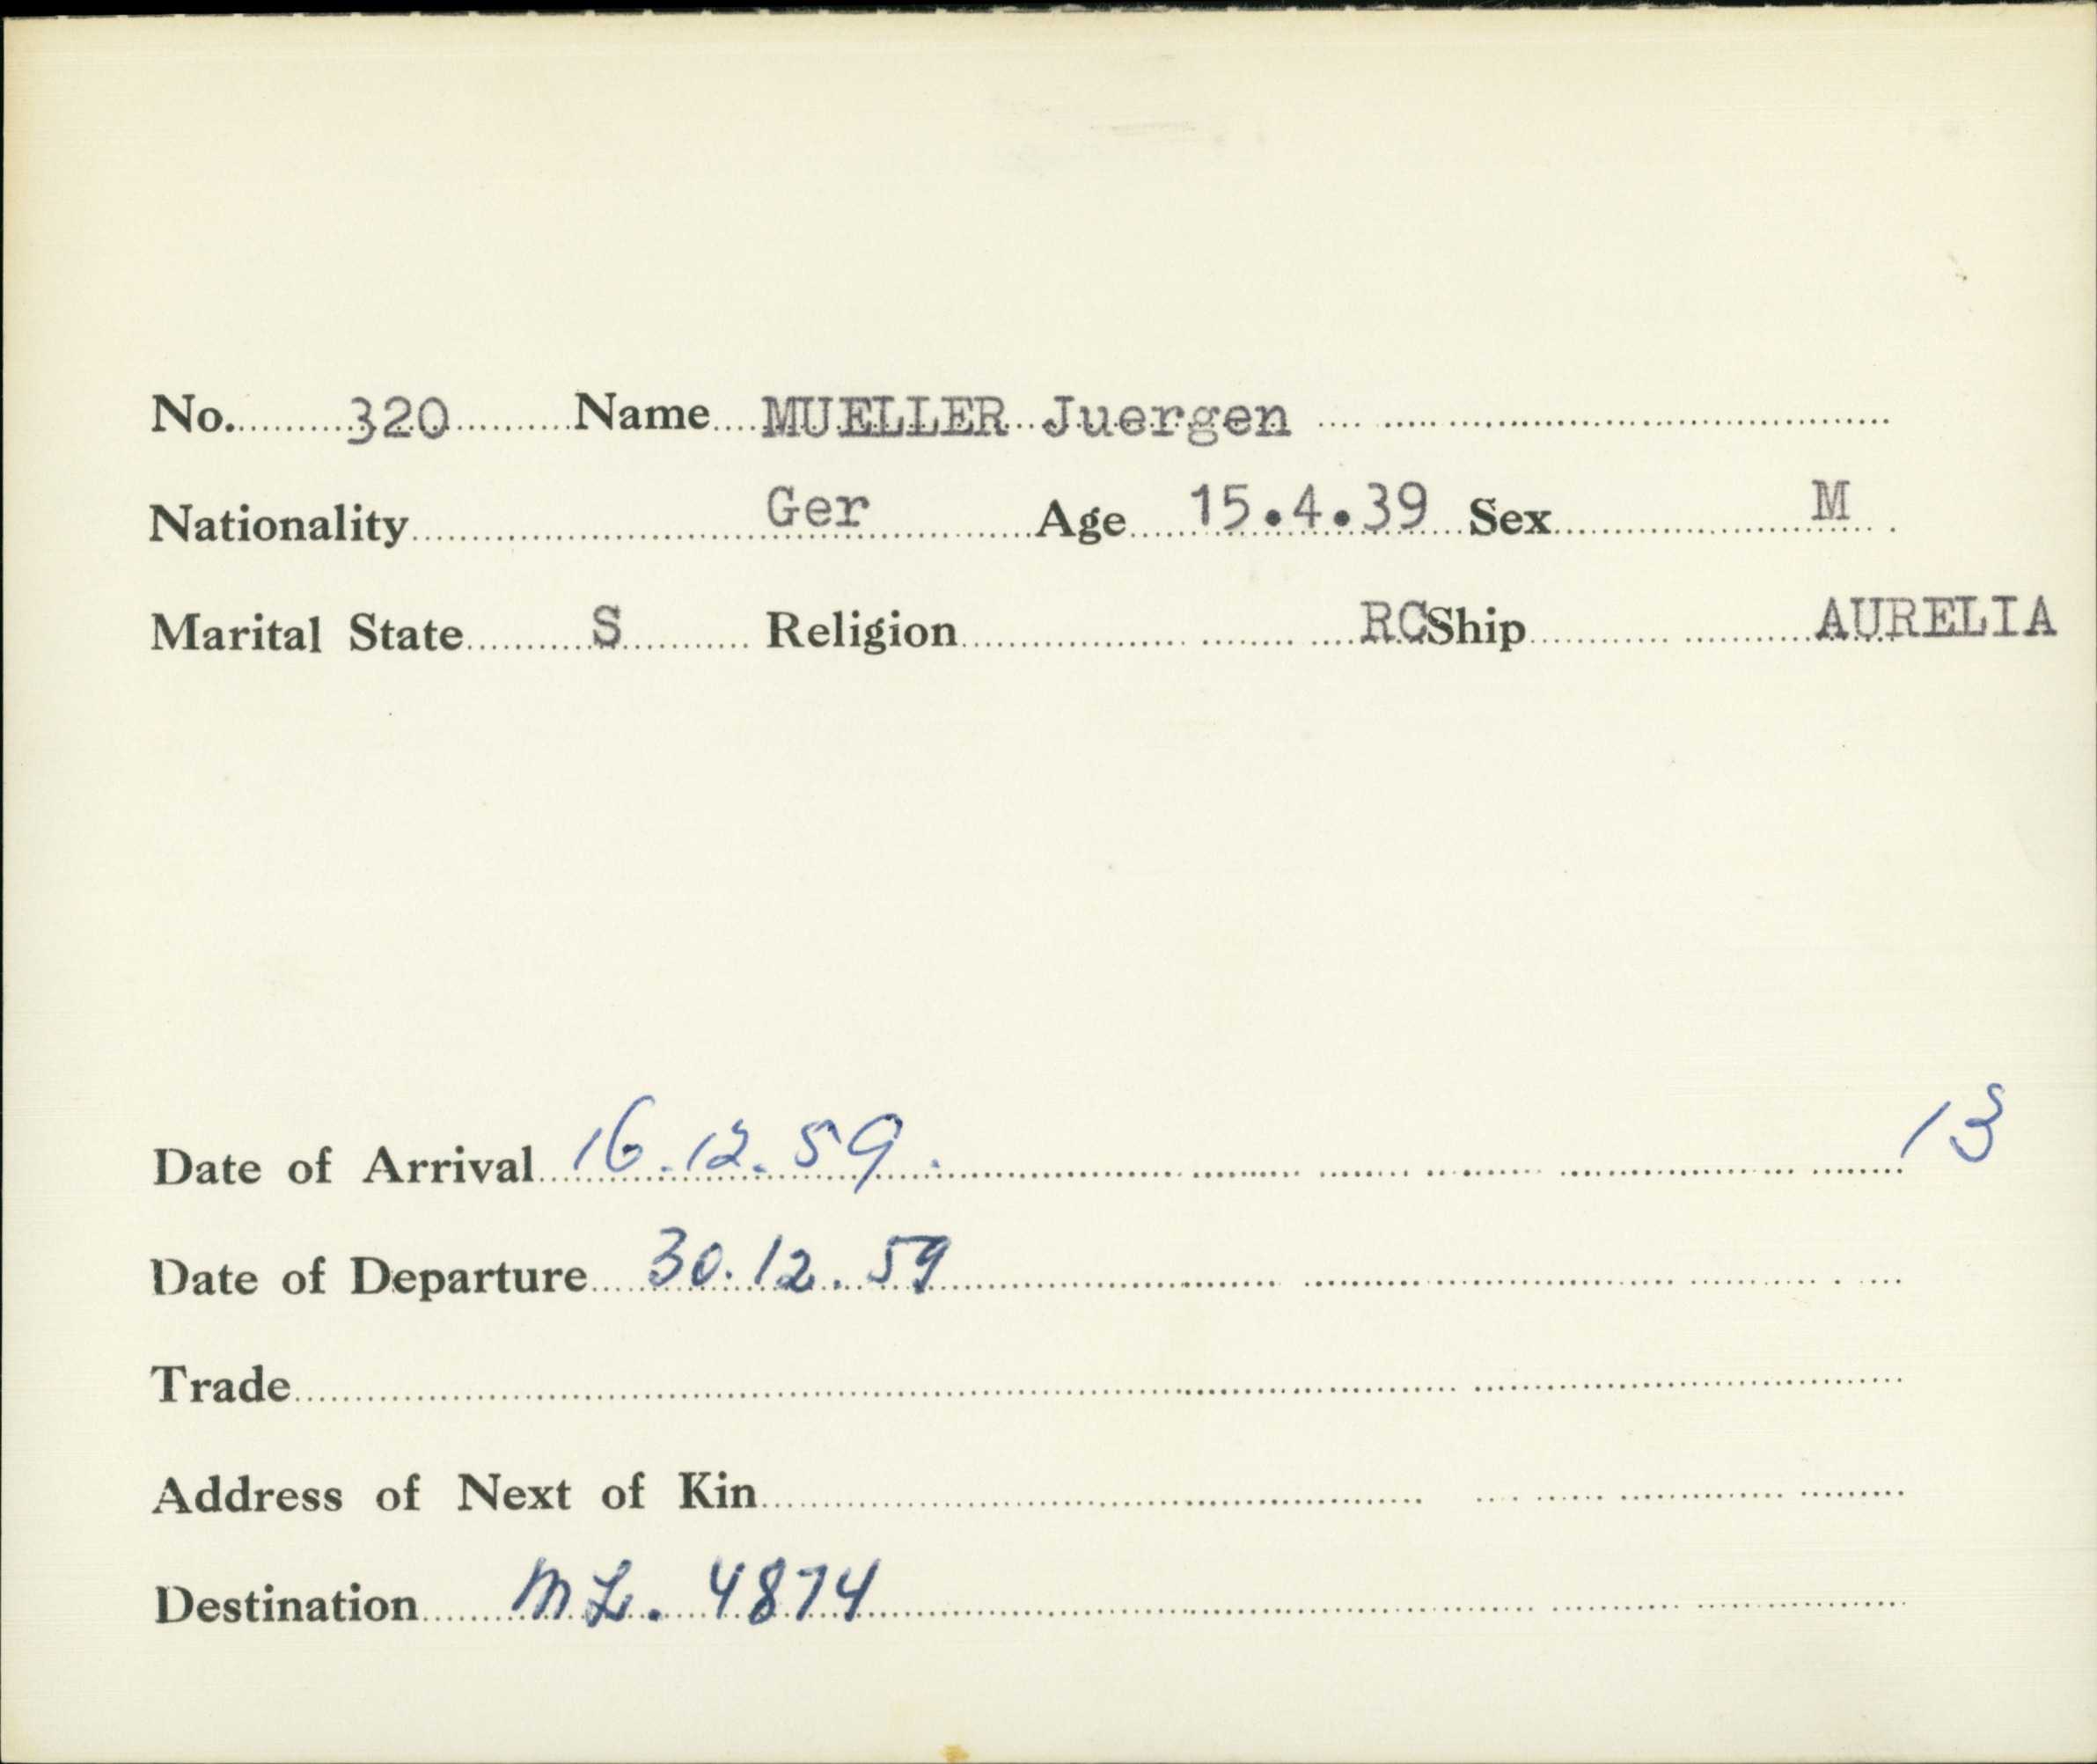 No. 320 Name MUELLER Juergen
Nationality Ger Age 15.4.39 Sex M
Marital State S Religion RC Ship AURELIA
Date of Arrival 16.12.59. 13
Date of Departure 30.12.59
Trade
Address of Next of Kin
Destination ML. 4874